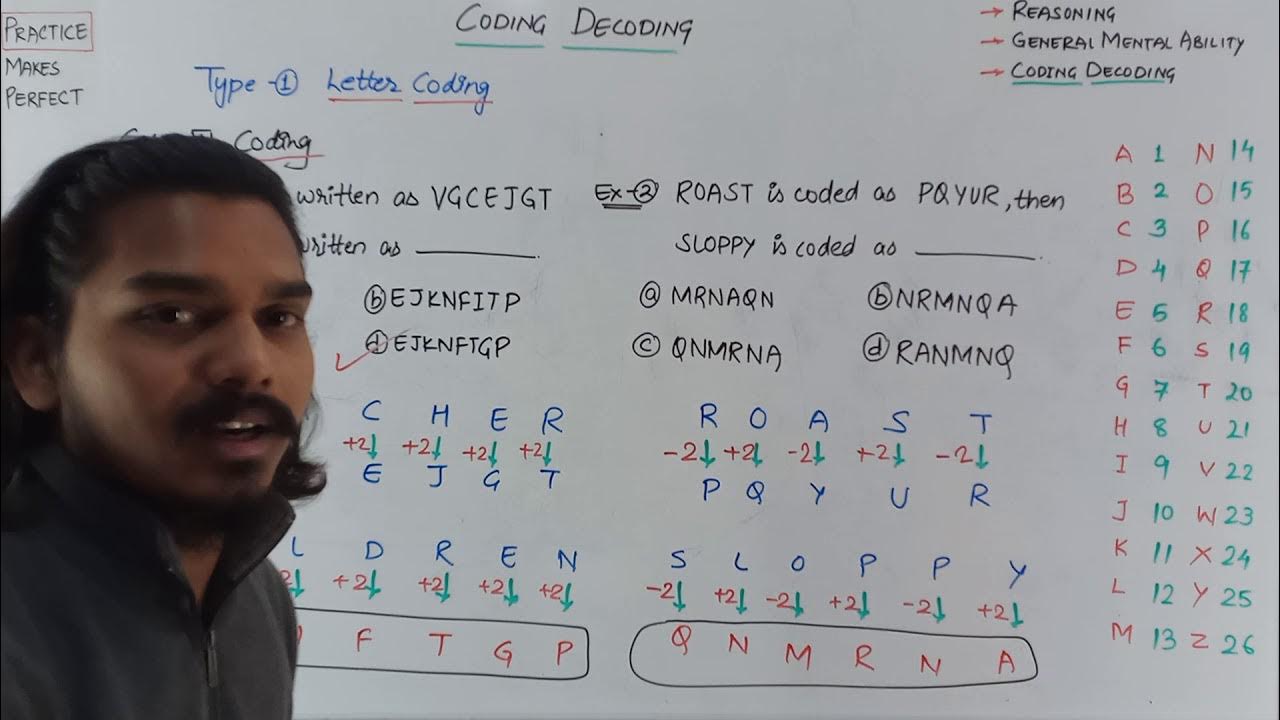 CODING DECODING
PRACTICE
MAKES
PERFECT
→ REASONING
→ GENERAL MENTAL ABILITY
→ CODING DECODING
Type-① Letter Coding
Coding
written as VGCEJGT
written as ________.
ⓑ EJKNFITP
ⓓ EJKNFTGP
C H E R
+2↓ +2↓ +2↓ +2↓
E J G T
L D R E N
2↓ +2↓ +2↓ +2↓ +2↓
F T G P
Ex-② ROAST is coded as PQYUR, then
SLOPPY is coded as ________.
ⓐ MRNAQN ⓑ NRMNQA
ⓒ QNMRNA ⓓ RANMNQ
R O A S T
-2↓ +2↓ -2↓ +2↓ -2↓
P Q Y U R
S L O P P Y
-2↓ +2↓ -2↓ +2↓ -2↓ +2↓
Q N M R N A
A 1 N 14
B 2 O 15
C 3 P 16
D 4 Q 17
E 5 R 18
F 6 S 19
G 7 T 20
H 8 U 21
I 9 V 22
J 10 W 23
K 11 X 24
L 12 Y 25
M 13 Z 26